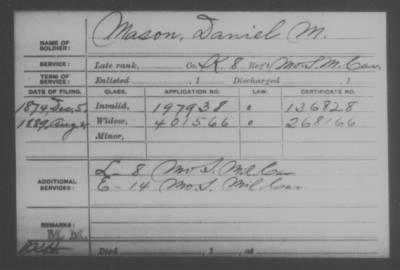 NAME OF SOLDIER: Mason, Daniel M.
SERVICE: Late rank, Co. K, 8 Reg't Mo. S. M. Cav.
TERM OF SERVICE: Enlisted , 1 Discharged , 1
DATE OF FILING. CLASS. APPLICATION NO. LAW. CERTIFICATE NO.
1874, Dec, 5 Invalid, 197938 136828
1889, Aug Widow, 401566 268166
Minor,
ADDITIONAL SERVICES: L - 8 Mo S. Mil Cav
E - 14 Mo. S. Mil Cav
REMARKS:
M. M.
Died , 1 , at